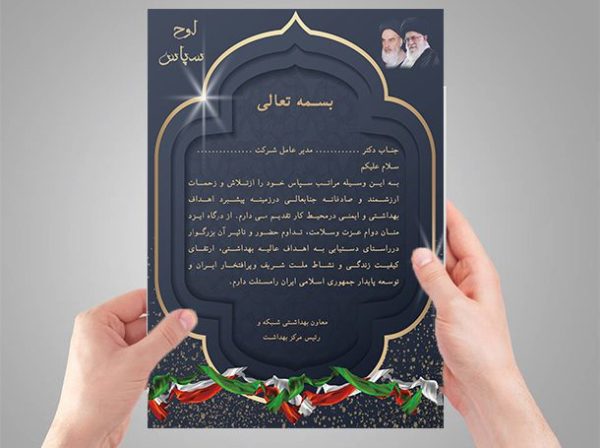 لوح
سپاس
بسمه تعالی
جناب دکتر ............ مدیر عامل شرکت ................
سلام علیکم
به این وسیله مراتب سپاس خود را ازتلاش و زحمات
ارزشمند و صادقانه جنابعالی درزمینه پیشبرد اهداف
بهداشتی و ایمنی درمحیط کار تقدیم می دارم. از درگاه ایزد
منان دوام عزت وسلامت، تداوم حضور و تاثیر آن بزرگوار
درراستای دستیابی به اهداف عالیه بهداشتی، ارتقای
کیفیت زندگی و نشاط ملت شریف وپرافتخار ایران و
توسعه پایدار جمهوری اسلامی ایران رامسئلت دارم.
معاون بهداشتی شبکه و
رئیس مرکز بهداشت